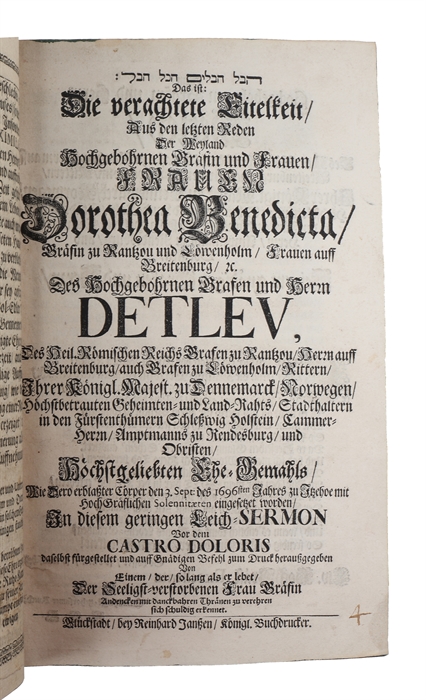 הבל הבלים הכל הבל:
Das ist:
Die verachtete Eitelkeit/
Aus den letzten Reden
Der Weyland
Hochgebohrnen Gräfin und Frauen/
FRAUEN
Dorothea Benedicta/
Gräfin zu Rantzou und Löwenholm/ Frauen auff
Breitenburg/ ꝛc.
Des Hochgebohrnen Grafen und Herrn
DETLEV,
Des Heil. Römischen Reichs Grafen zu Rantzou/ Herrn auff
Breitenburg/ auch Grafen zu Löwenholm/ Rittern/
Ihrer Königl. Majest. zu Dennemarck/ Norwegen/
Höchstbetrauten Geheimten- und Land-Rahts/ Stadthaltern
in den Fürstenthümern Schleßwig Holstein/ Cammer-
Herrn/ Amptmanns zu Rendesburg/ und
Obristen/
Höchstgeliebten Ehe-Gemahls/
Wie Dero erblaßter Cörper den 2. Sept: des 1696sten Jahres zu Itzehoe mit
HochGräflichen Solennitæten eingesetzet worden/
In diesem geringen Leich-SERMON
Vor dem
CASTRO DOLORIS
daselbst fürgestellet und auff Gnädigen Befehl zum Druck heraußgegeben
Von
Einem/ der/ so lang als er lebet/
Der Seeligst-verstorbenen Frau Gräfin
Andencken mit danckbahren Thränen zu verehren
sich schuldig erkennet.
Glückstadt/ bey Reinhard Janßen/ Königl. Buchdrucker.
4